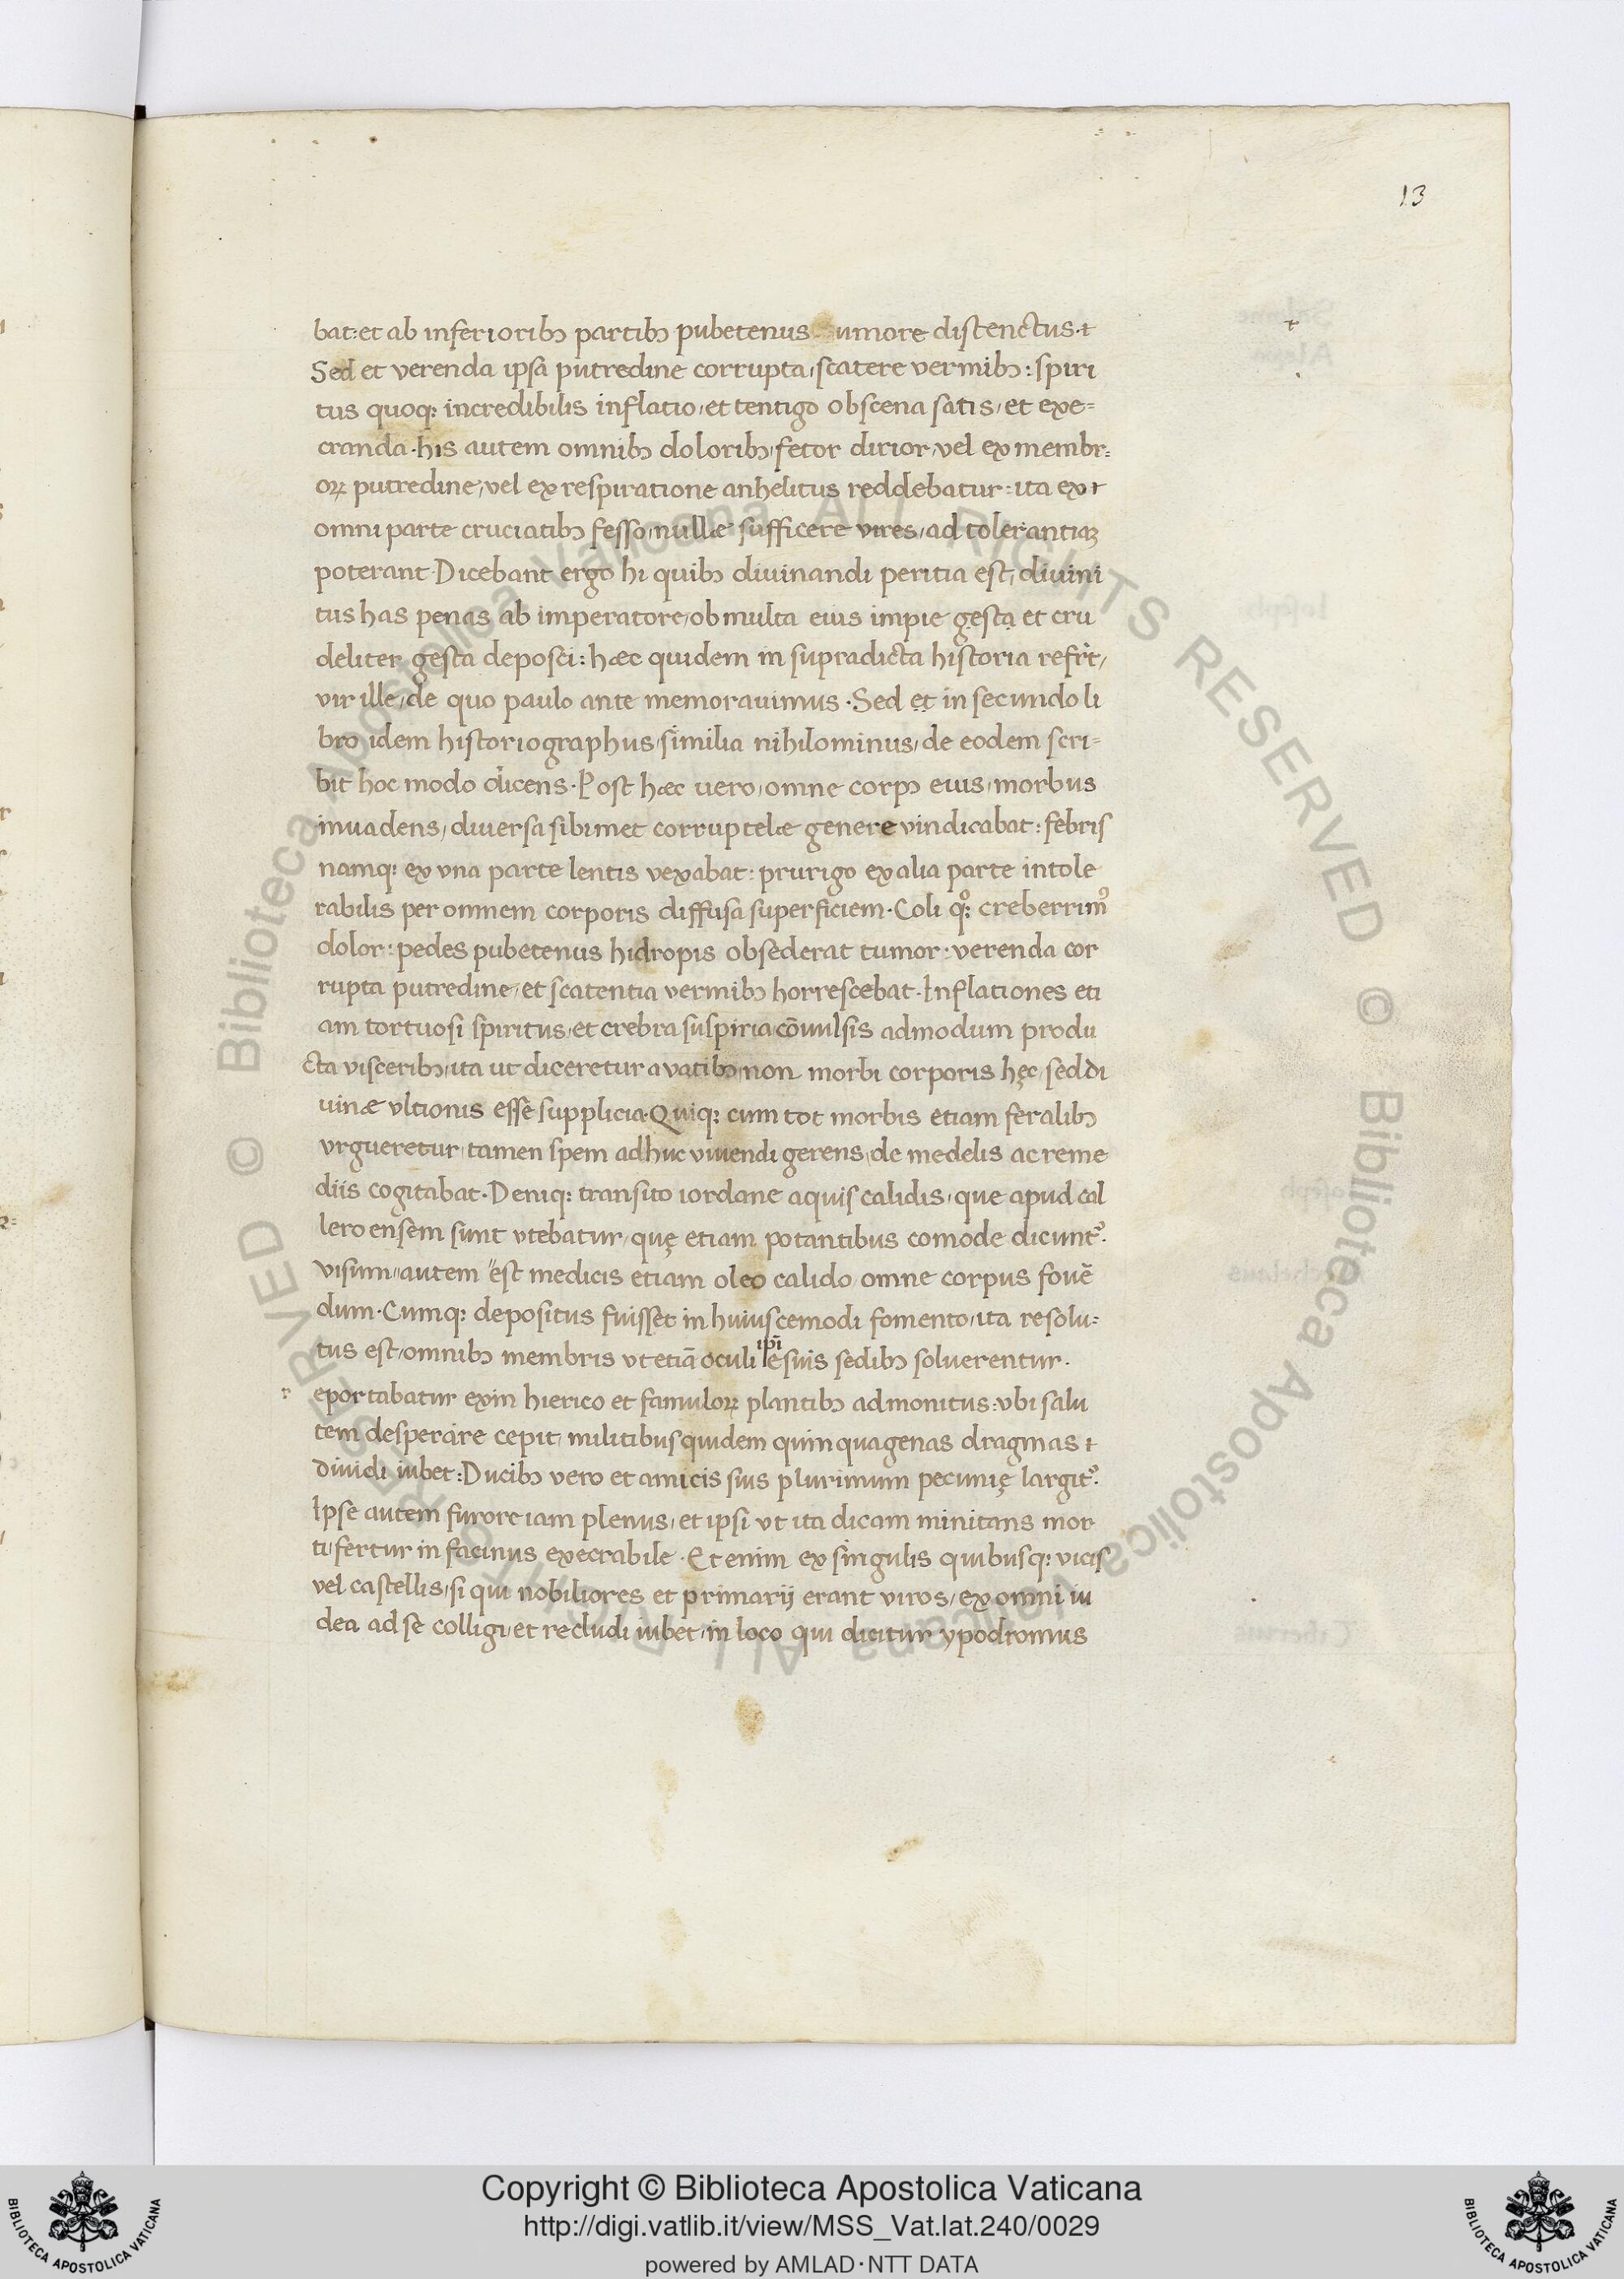 13
bat: et ab inferioribꝫ partibꝫ pubetenus umore distenctus.
Sed et verenda ipsa putredine corrupta, scatere vermibꝫ: spiri
tus quoqꝫ incredibilis inflatio, et tentigo obscena satis, et exe=
cranda. his autem omnibꝫ doloribꝫ, fetor dirior, vel ex membr=
oꝝ putredine, vel ex respiratione anhelitus reddebatur: ita ex
omni parte cruciatibꝫ fesso, nullæ sufficere vires, ad tolerantiaꝫ
poterant. Dicebant ergo hi quibꝫ divinandi peritia est, divini
tus has penas ab imperatore, ob multa eius impie gesta et cru
deliter gesta deposci: hæc quidem in supradicta historia refrt,
vir ille, de quo paulo ante memoravimus. Sed et in secundo li
bro idem historiographus, similia nihilominus, de eodem scri=
bit hoc modo dicens. Post hæc vero, omne corpꝰ eius, morbus
invadens, diversa sibimet corruptelæ genere vindicabat: febris
namqꝫ ex una parte lentis vexabat: prurigo ex alia parte intole
rabilis per omnem corporis diffusa superficiem. Coli qͦꝫ creberrimꝰ
dolor: pedes pubetenus hidropis obsederat tumor: verenda cor
rupta putredine, et scatentia vermibꝫ horrescebat. Inflationes eti
am tortuosi spiritus, et crebra suspiria cōvulsis admodum produ
cta visceribꝫ, ita ut diceretur a vatibꝫ, non morbi corporis hęc, sed di
vinæ ultionis esse supplicia. Quiqꝫ cum tot morbis etiam feralibꝫ
urgueretur, tamen spem adhuc vivendi gerens, de medelis ac reme
diis cogitabat. Deniqꝫ transito iordane aquis calidis, que apud cal
leroensem sunt utebatur, quę etiam potantibus comode dicuntᷣ.
visum autem est medicis etiam oleo calido omne corpus fovē
dum. Cumqꝫ depositus fuisset in huiuscemodi fomento, ita resolu=
tus est, omnibꝫ membris ut etiā oculi ip̄i e suis sedibꝫ solverentur.
r eportabatur exin hierico et famuloꝝ plantibꝫ admonitus: ubi salu
tem desperare cepit, militibus quidem quinquagenas dragmas
dividi iubet: Ducibꝫ vero et amicis suis plurimum pecunię largitᷣ.
Ipse autem furore iam plenus, et ipsi ut ita dicam minitans mor
ti, fertur in facinus execrabile. Et enim ex singulis quibusqꝫ vicis
vel castellis, si qui nobiliores et primarij erant viros, ex omni iu
dea ad se colligi, et recludi iubet, in loco qui dicitur ypodromus
Copyright © Biblioteca Apostolica Vaticana
http://digi.vatlib.it/view/MSS_Vat.lat.240/0029
powered by AMLAD · NTT DATA
BIBLIOTECA APOSTOLICA VATICANA
BIBLIOTECA APOSTOLICA VATICANA